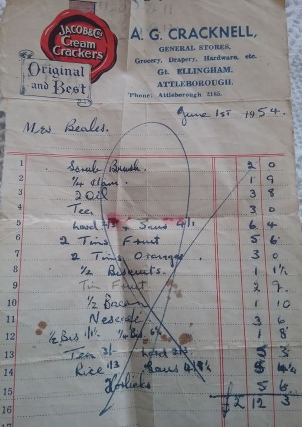 JACOB & CO'S
Cream
Crackers
Original
and Best
A. G. CRACKNELL,
GENERAL STORES,
Grocery, Drapery, Hardware, etc.
Gt. ELLINGHAM,
ATTLEBOROUGH.
'Phone: Attleborough 2185.
June 1st 1954.
Mrs Beales.
1 Scrub Brush. 2 0
2 1/4 Ham. 1 9
3 2 Oil 3 8
4 Tea 3 0
5 Lard 2/3 + Saus 4/1 6 4
6 2 Tins Fruit 5 6
7 2 Tins Oranges 3 0
8 1/2 Biscuits. 1 1½
9 Tin Fruit 2 7.
10 1/2 Bacon 1 10
11 Nescafe 3 6
12 1/2 Bis 1/1½. 1/4 6½ 1 8
13 Tea 3/- Lard 2/3 5 3
14 Rice 1/3 Saus 4/1½ 5 4½
15 Horlicks 5 6
16 £ 2 12 3